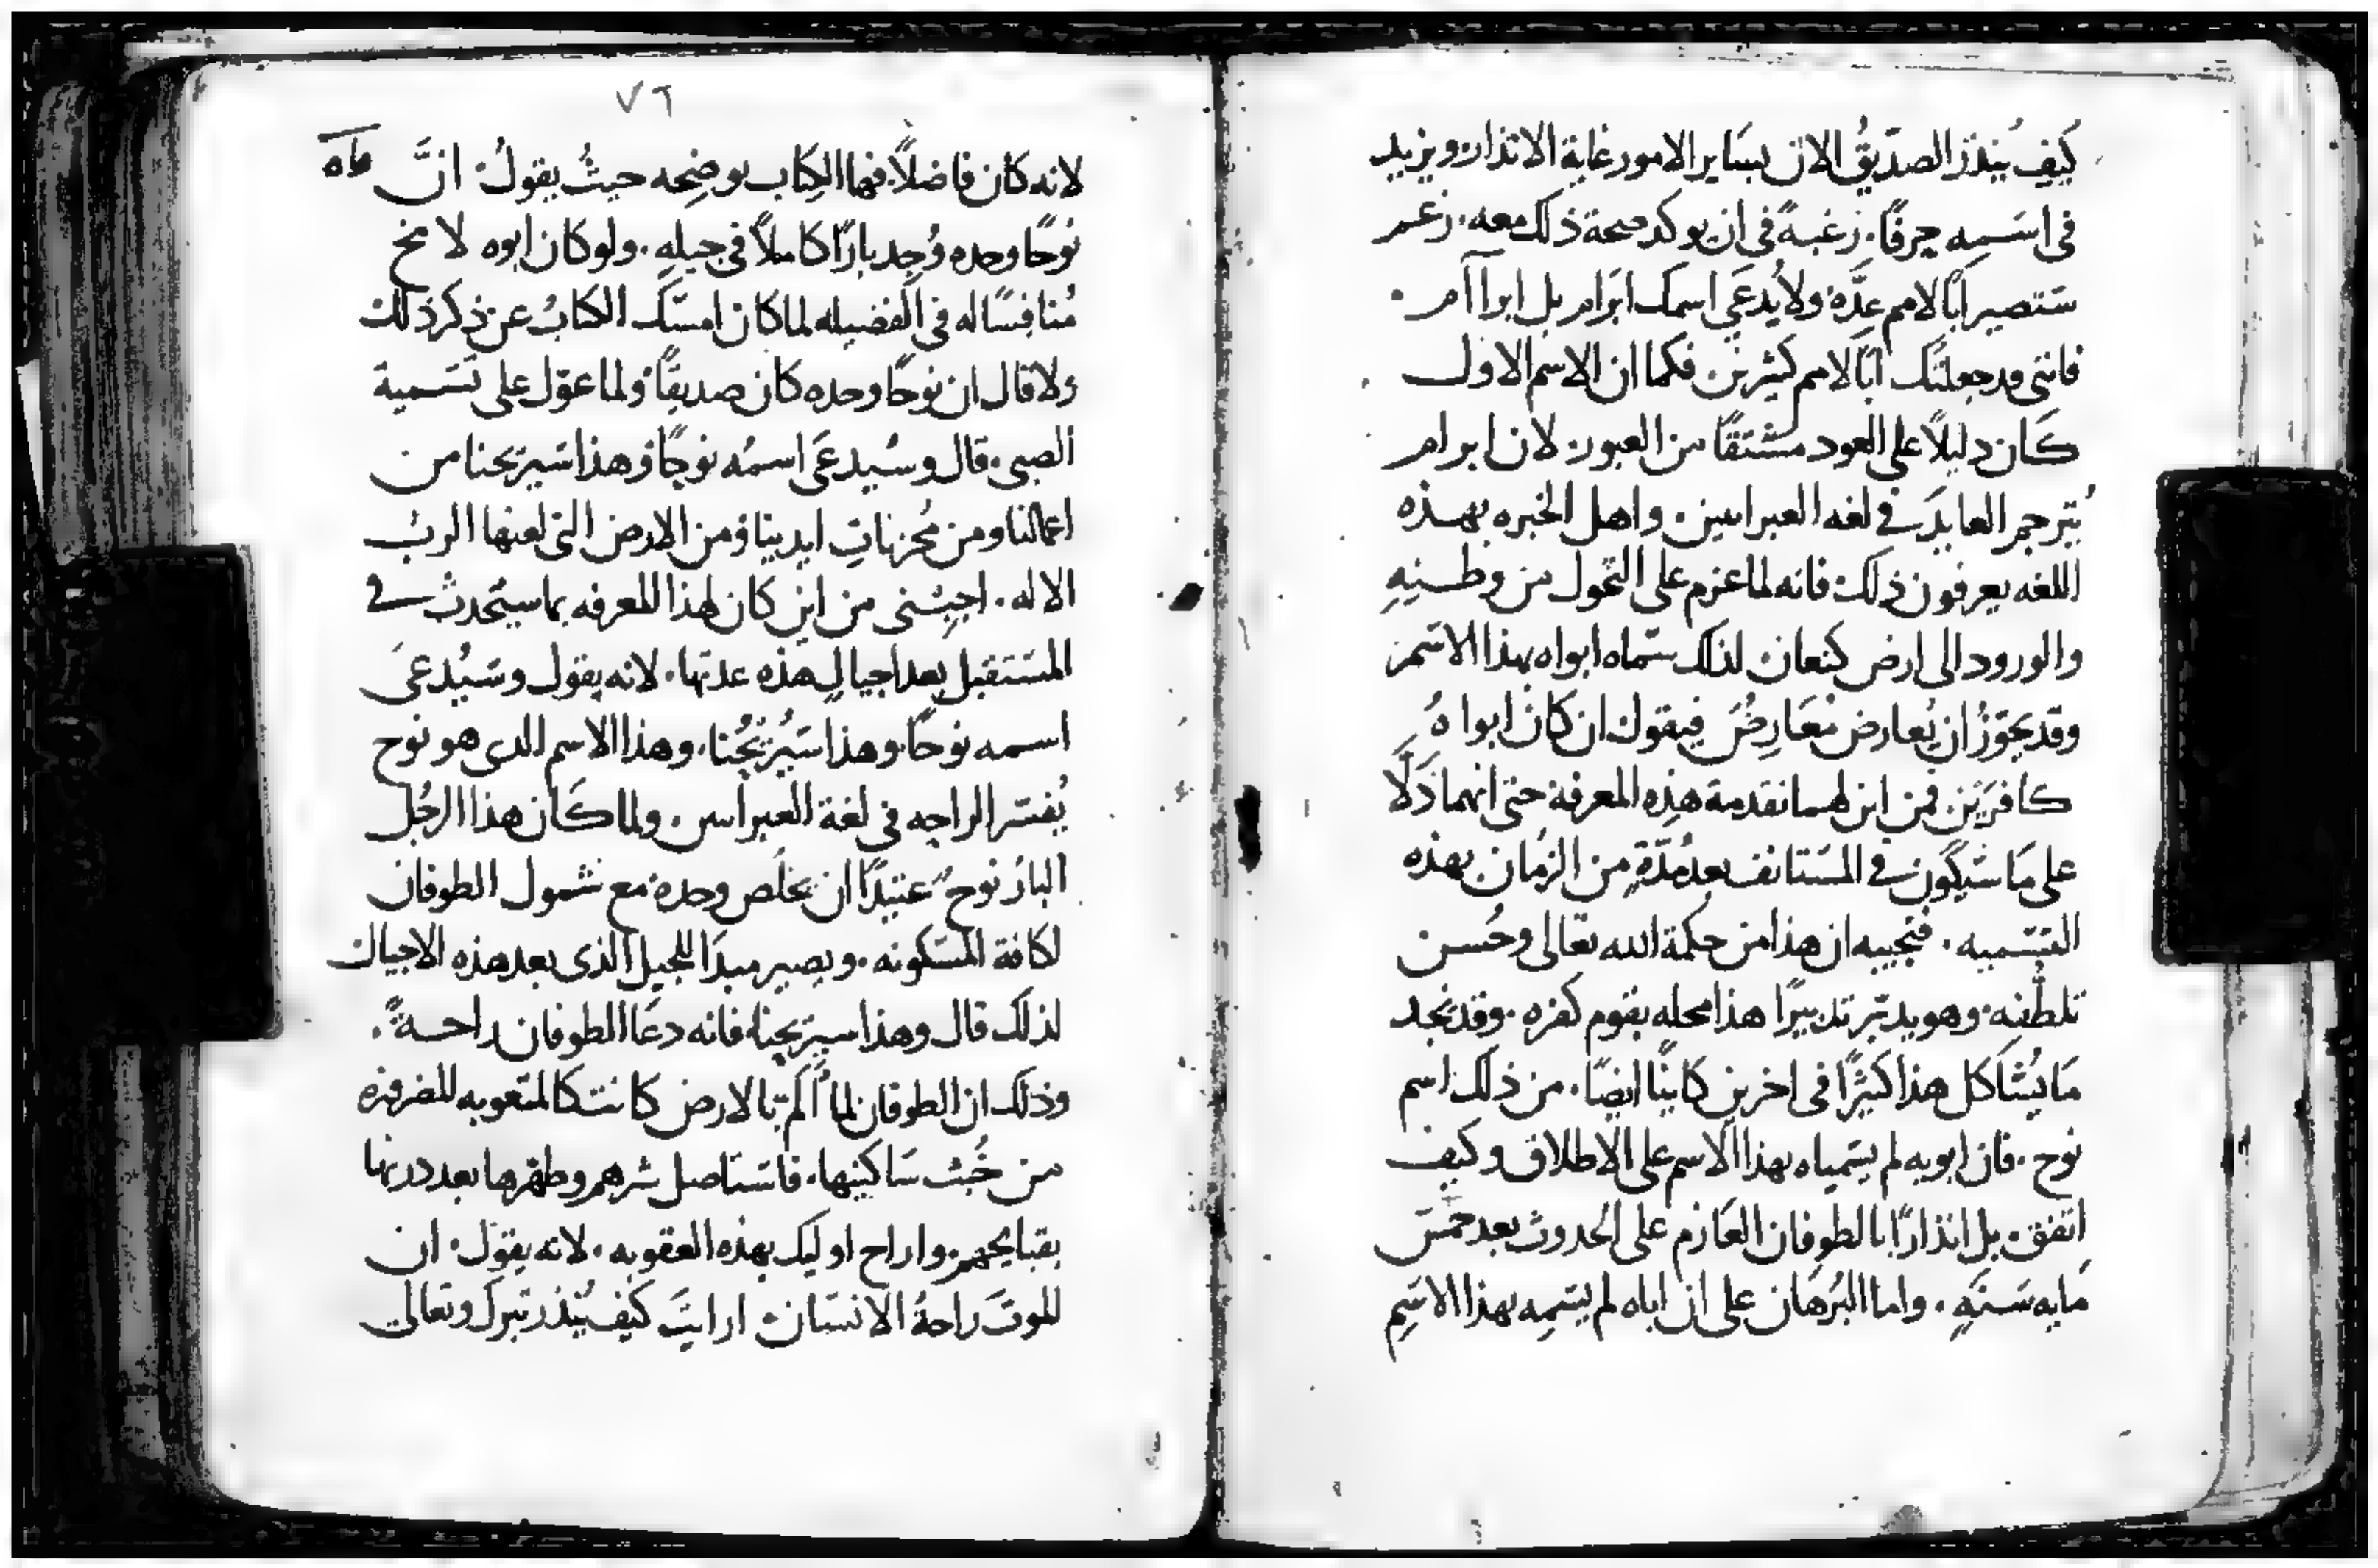 كيف ينذر الصديق الان بساير الامور غاية الانذار ويزيد
في اسمه حرفًا. رغبةً في ان يوكد صحة ذلك معه. زعم
ستصير ابًا لامم عدّه ولا يدعى اسمك ابرام بل ابراآم.
فانني قد جعلتك ابًا لامم كثيرين فكما ان الاسم الاول
كان دليلًا على العود مشتقًا من العبور لان ابرام
يترجم العابر في لغه العبرانيين. واهل الخبره بهذه
اللغه يعرفون ذلك فانه لما عزم على التحول من وطنهِ
والورود الى ارض كنعان لذلك سماه ابواه بهذا الاسم
وقد يجوّزُ ان يُعارض مُعَارِضُ فيقول ان كان ابواهُ
كافرَيَن. فمن اين لهما تقدمة هذِه المعرفة حتى انهما دَلَّا
على مَا سَيكون في المستانف بعد مُدّةٍ من الزمان بهذه
التسميه. فنجيبه ان هذا من حكمة الله تعالى وحُسن
تلطُّفه وهو يدبّر تدبيرًا هذا محله بقوم كفره. وقد نجد
مَا يُشاكل هذا كثيرًا في اخرين كاينًا ايضًا. من ذلك اسم
نوح. فان ابويه لم يسمياه بهذا الاسم على الاطلاق وكيف
اتفق بل انذارًا بالطوفان العَازم على الحدوث بعد خمس
مَايه سَنهٍ. واما البُرهان على ان اباه لم يسمِه بهذا الاسمِ
٧٦
لانه كان فاضلًا فهما الكِتاب يوضِحه حيثُ يقولُ انَّ
نوحًا وحده وُجد بارًا كاملًا في جيلهِ. ولو كان ابوه لامخ
مُنافِسًا له في الفضيله لما كان امسَك الكتابُ عن ذكر ذلك
ولا قال ان نوحًا وحده كان صديقًا ولما عوّل على تسَمية
الصبي. قال وسُيدعَى اسمُه نوحًا وهذا سَيريحنا من
اعمالنا ومن مُحزنِاتِ ايدينا ومن الارض التى لعنها الربُ
الاله. اجِبنى من اين كان لهذا المعرفه بما سيَحدث في
المستقبل بعد اجيالٍ هذه عدتها. لانه يقول وسَيُدعىَ
اسمه نوحًا وهذا سَيُريَحُنا. وهذا الاسم الدى هو نوح
يُفسّر الراحه في لغة العبراسن. ولما كَان هذا الرجُل
البارُ نوح عتيدًا ان يخلَص وحده مع شمول الطوفان
لكافة المسكونه. ويصير مبدَا للجيل الذى بعد هذه الاجيال
لذلك قال وهذا سيريحنا فانه دعَا الطوفان راحةً.
وذلك ان الطوفان لما اَلَمَّ بالارض كانت كالمتعوبه للضروره
من خُبث سَاكنيها. فاستاصل شرهم وطهّرها بعد درنها
بقبايحهم. واراح اوليك بهذه العقوبه. لانه يقوَل ان
للموتَ راحةُ الانسَان ارايتَ كيَف يُنذر تبرك وتعالى